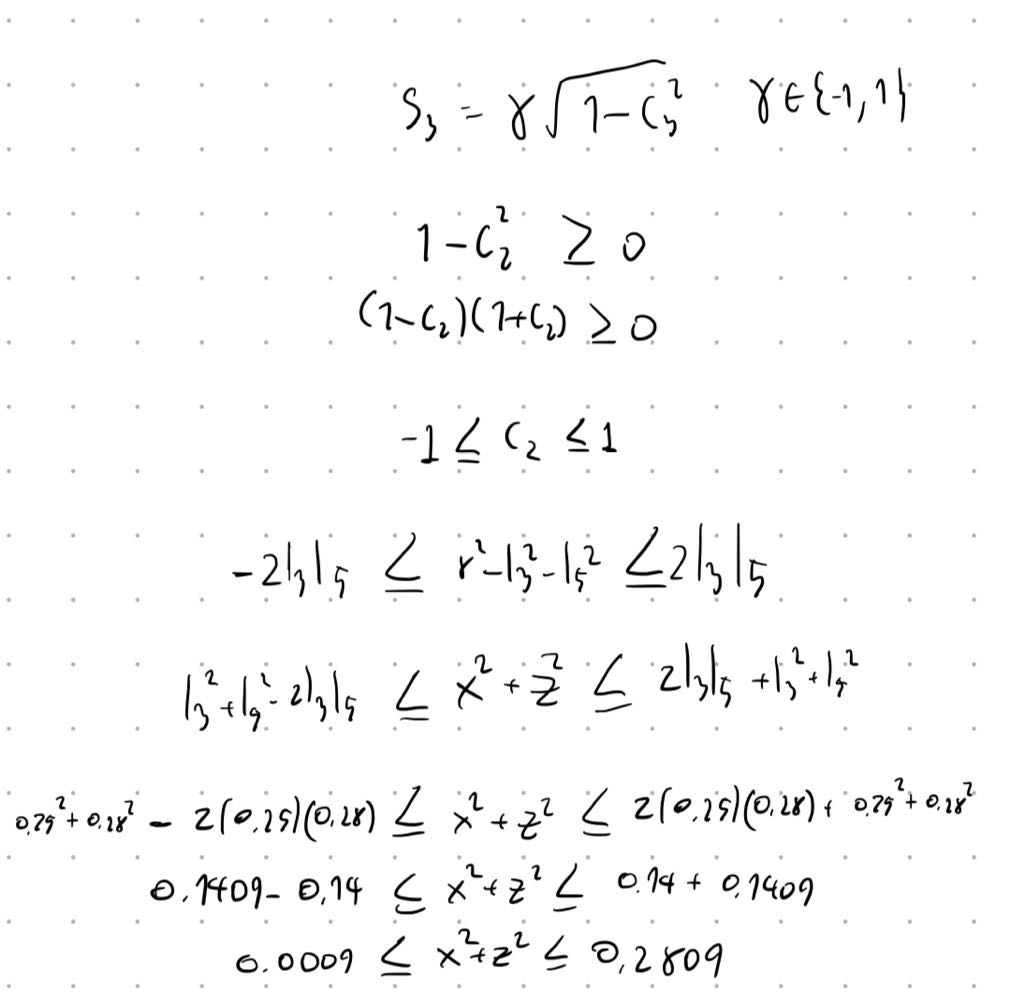 S₃ = γ√(1-C₃²) γ∈{-1,1}
1-C₂² ≥ 0
(1-C₂)(1+C₂) ≥ 0
-1 ≤ C₂ ≤ 1
-2l₃l₅ ≤ r²-l₃²-l₅² ≤ 2l₃l₅
l₃²+l₅²-2l₃l₅ ≤ x²+z² ≤ 2l₃l₅+l₃²+l₅²
0,25²+0,28² - 2(0,25)(0,28) ≤ x²+z² ≤ 2(0,25)(0,28)+0,25²+0,28²
0.1409-0,14 ≤ x²+z² ≤ 0.14+0,1409
0.0009 ≤ x²+z² ≤ 0,2809